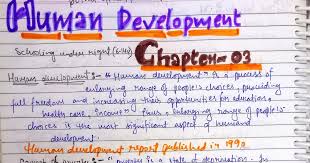 Human Development
Schooling under right
Chapter-03
Human development :- "Human development" is a process of
enlarging range of people's choices, providing
full freedom and increasing their opportunities for education,
health care, income thus enlarging range of people's
choices is the most significant aspect of human
development.
Human development report published in 1990
is a state of deprivation. In